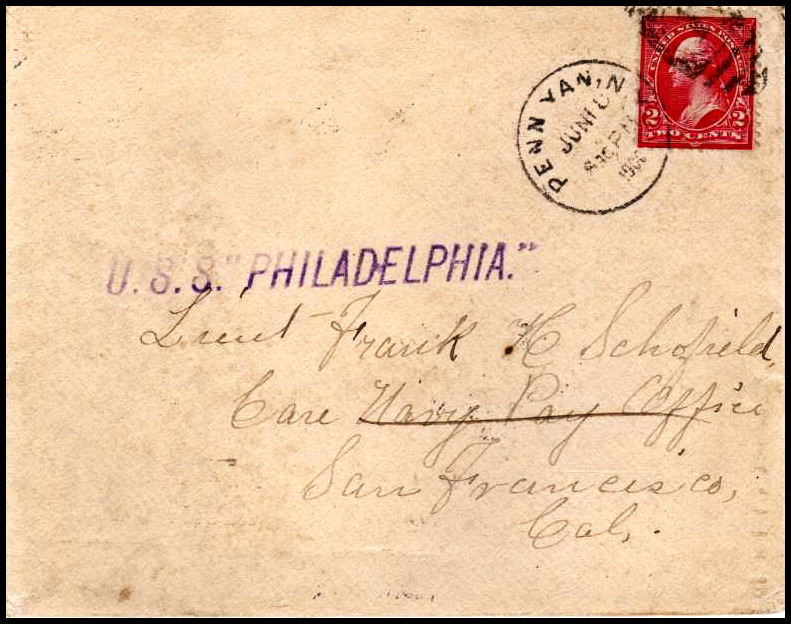 UNITED STATES POSTAGE
2 2
TWO CENTS
PENN YAN, N
JUN
PM
U.S.S. "PHILADELPHIA."
Lieut Frank H Schofield,
Care Navy Pay Office
San Francisco,
Cal.